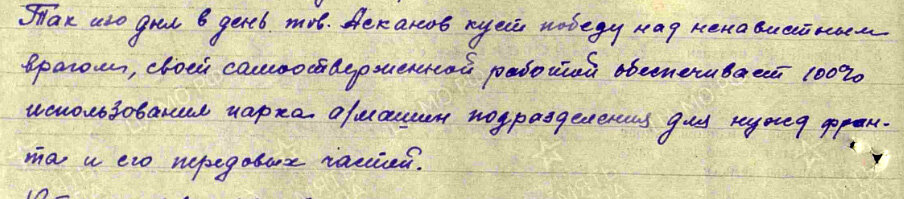 Так изо дня в день тов. Асканов кует победу над ненавистным
врагом, своей самоотверженной работой обеспечивает 100%
использования парка а/машин подразделения для нужд фрон-
та и его передовых частей.